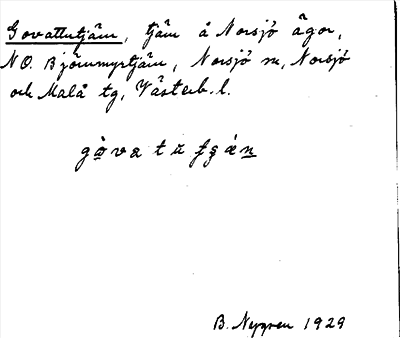 Govattutjärn, tjärn å Norsjö ägor,
NO. Björnmyrtjärn, Norsjö sn, Norsjö
och Malå tg, Västerb. l.
B. Nygren 1929